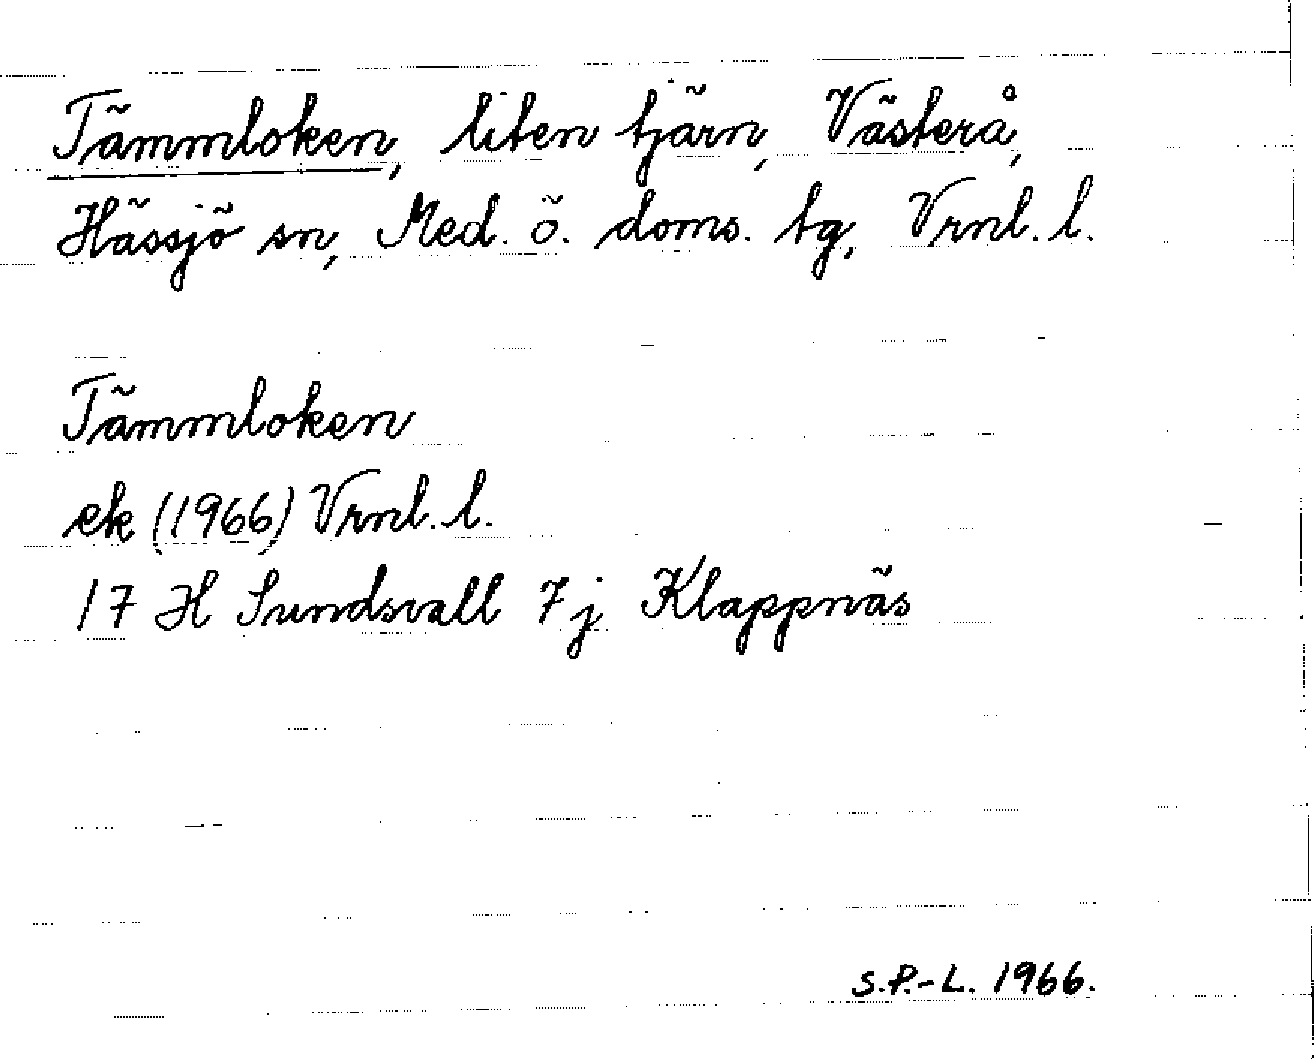 Tämmloken, liten tjärn, Västerå,
Hässjö sn, Med. ö. doms. tg, Vrnl. l.
Tämmloken
ek (1966) Vrnl. l.
17 H Sundsvall 7j Klappnäs
S.P.-L. 1966.